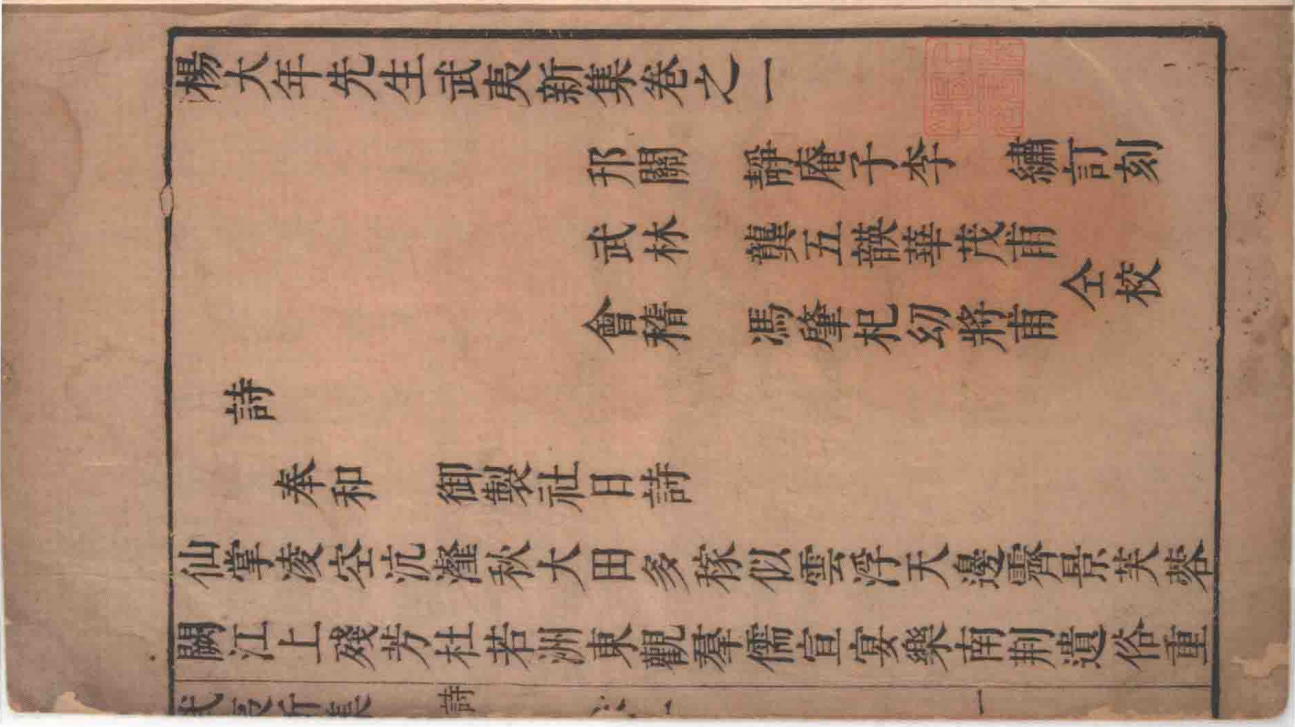 楊大年先生武夷新集卷之一
邗關 靜庵子李 繡訂刻
武林 龔五韺華茂甫
會稽 馮肇杞幼將甫 仝校
詩
奉和 御製社日詩
仙掌凌空沆瀣秋大田多稼似雲浮天邊霽景芙蓉
闕江上殘芳杜若洲東觀羣儒宣宴樂南荆遺俗重
詩
一